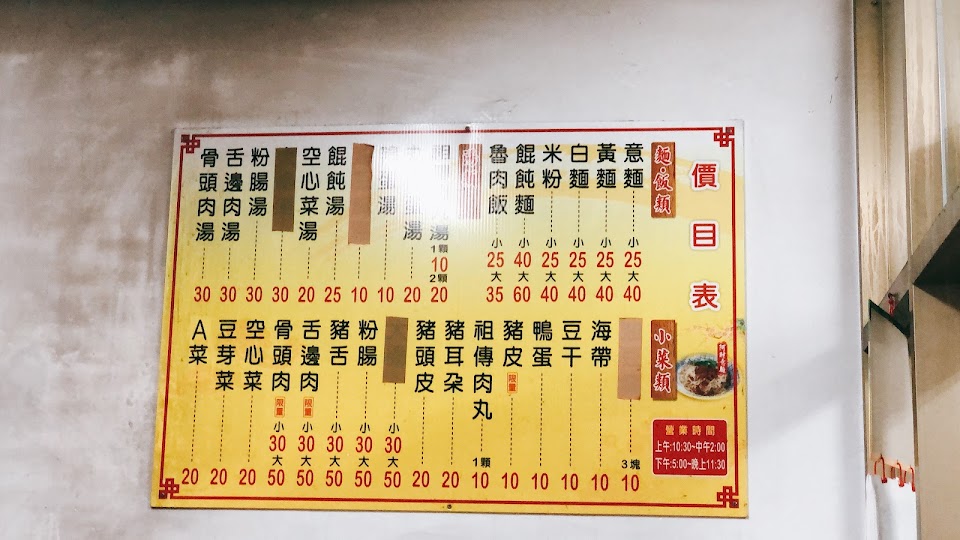 價目表
麵‧飯類
意麵 小25 大40
黃麵 小25 大40
白麵 小25 大40
米粉 小25 大40
餛飩麵 小40 大60
魯肉飯 小25 大35
湯 1顆10 2顆20
湯 20
湯 10
10
餛飩湯 25
空心菜湯 20
30
粉腸湯 30
舌邊肉湯 30
骨頭肉湯 30
小菜類
3塊10
海帶 10
豆干 10
鴨蛋 10
豬皮 限量 10
祖傳肉丸 1顆10
豬耳朵 20
豬頭皮 20
小30 大50
粉腸 小30 大50
豬舌 小30 大50
舌邊肉 限量 小30 大50
骨頭肉 限量 小30 大50
空心菜 20
豆芽菜 20
A菜 20
營業時間
上午:10:30~中午2:00
下午:5:00~晚上11:30